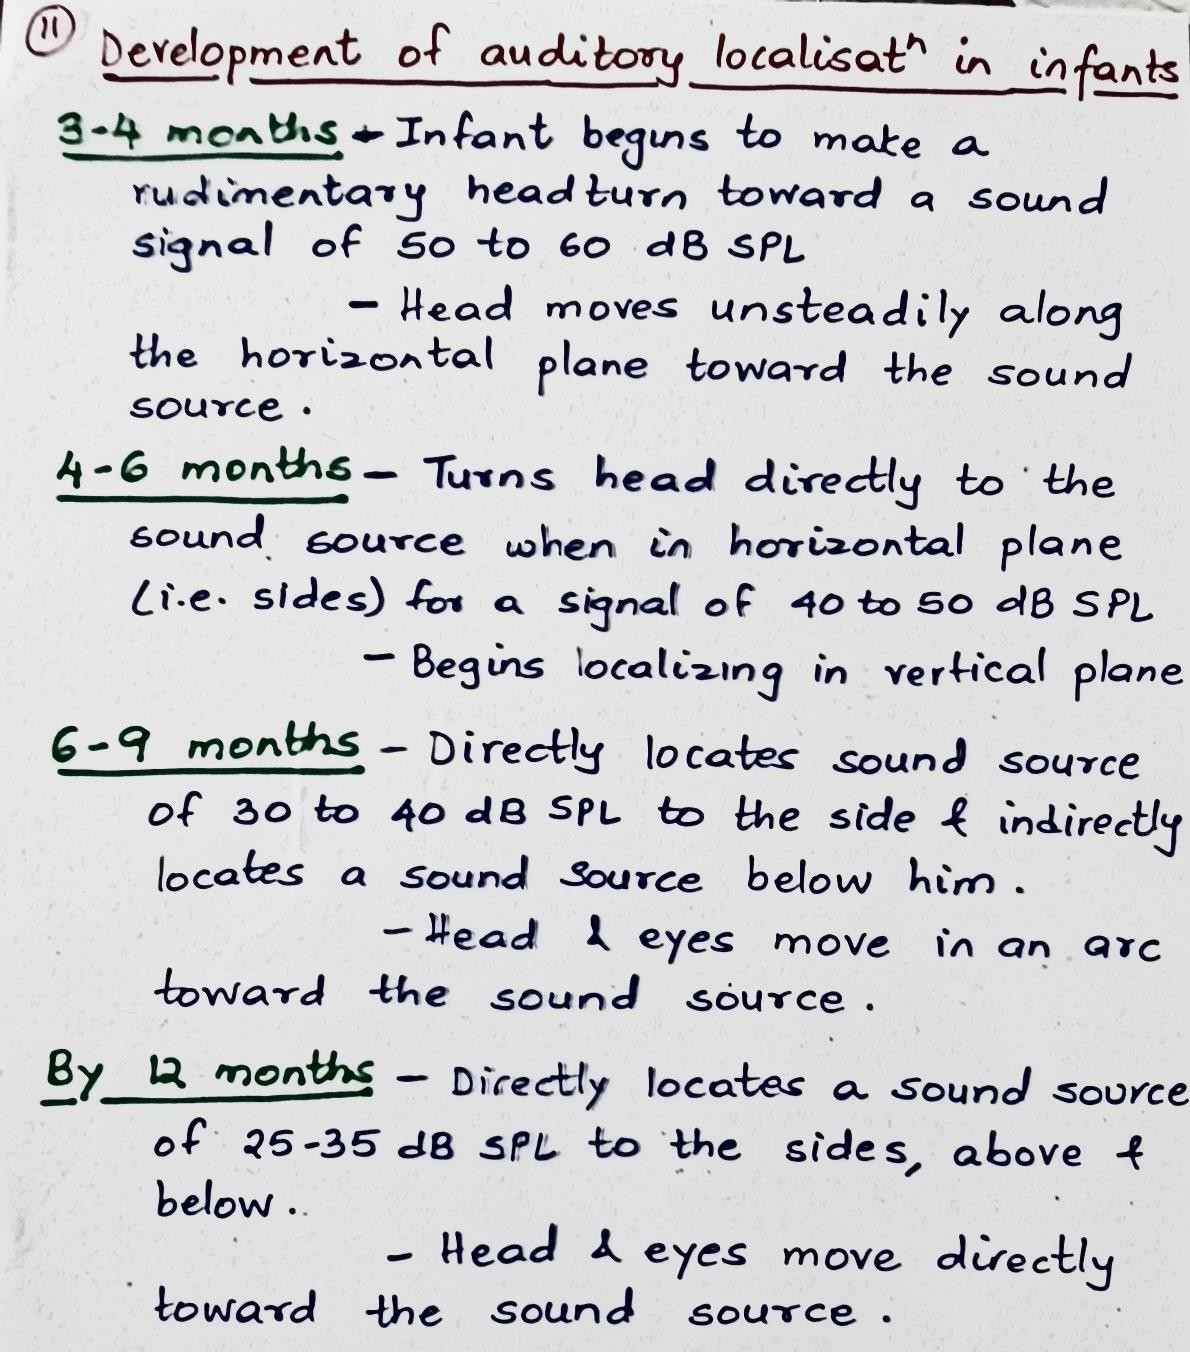 11 Development of auditory localisatⁿ in infants
3-4 months - Infant begins to make a
rudimentary head turn toward a sound
signal of 50 to 60 dB SPL
- Head moves unsteadily along
the horizontal plane toward the sound
source.
4-6 months - Turns head directly to the
sound source when in horizontal plane
(i.e. sides) for a signal of 40 to 50 dB SPL
- Begins localizing in vertical plane
6-9 months - Directly locates sound source
of 30 to 40 dB SPL to the side & indirectly
locates a sound source below him.
- Head & eyes move in an arc
toward the sound source.
By 12 months - Directly locates a sound source
of 25-35 dB SPL to the sides, above &
below.
- Head & eyes move directly
toward the sound source.